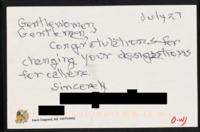 July 27
Gentlewomen,
Gentlemen,
Congratulations for
changing your designations
for callers
sincerely